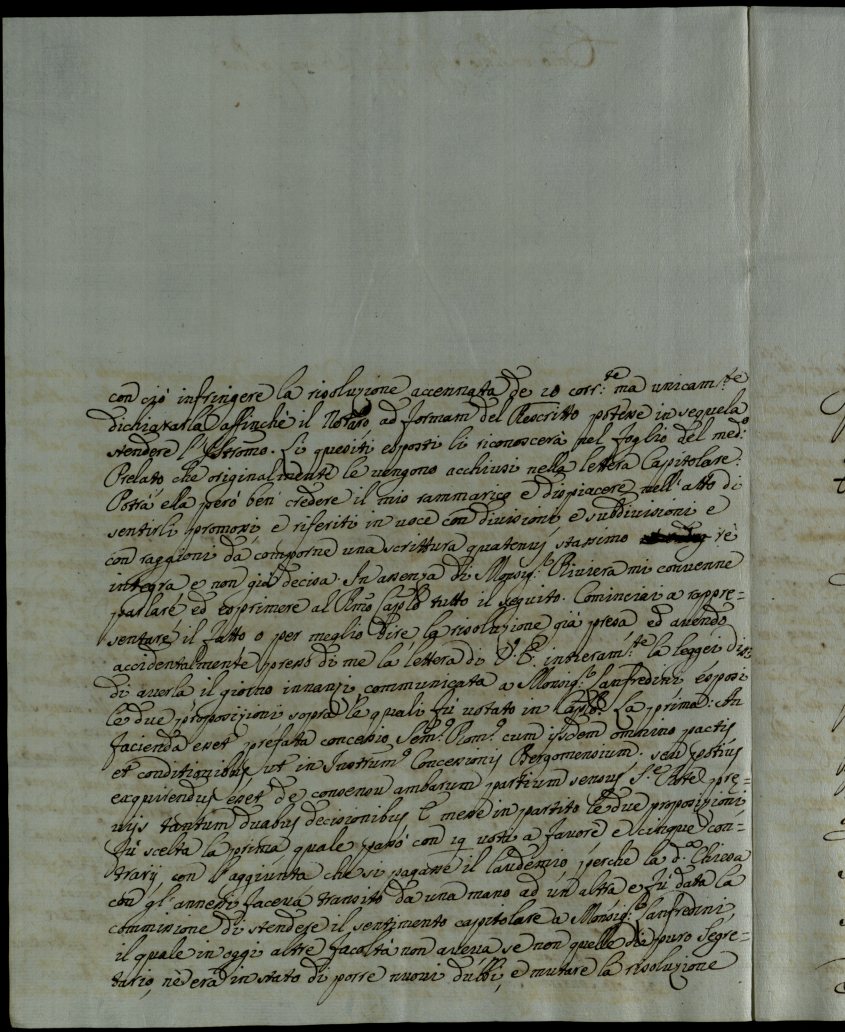 con ciò infringere la risoluzione accennata de 20 corr.te ma unicam.te
dichiararla affinchè il Notaro ad formam del Rescritto potesse in sequela
stendere l'Istromo. Li quesiti esposti li riconoscerà nel foglio del med.o
Prelato che originalmente le vengono acchiusi nella lettera Capitolare.
Potrà ela però ben credere il mio rammarico e dispiacere nell'atto di
sentirli promossi e riferiti in voce con divisioni e subdivisioni e
con raggioni da comporne una scrittura quatenus stassimo rè
integra e non già decisa. In assenza di Monsig.r Riviera mi convenne
parlare ed esprimere al Rmo Caplo tutto il seguito. Cominciai a rappre=
sentare il fatto o per meglio dire la risoluzione già presa ed avendo
accidentalmente presso di me la lettera di V. E. intieram.te la leggei
di averla il giorno innanzi communicata a Monsig.r Lanfredini esposi
le due proposizioni sopra le quali fù votato in Caplo. La prima: An
facienda esset prefata concessio Sem.o Rom.o cum ijsdem omnino pactis
et conditionibus ut in Instrum.o Concessionis Bergomensium. seu potius
exquirendus esset de consensu ambarum partium sensus S. Rotæ præ=
vijs tantum duabus decisionibus e messe in partito le due proposizioni
fù scelta la prima quale passò con 19 voti a favore e cinque con=
trarij con l'aggiunta che si pagasse il laudemio perche la d.a Chiesa
con gl'annessi faceva transito da una mano ad un altra e fù data la
commissione di stendere il sentimento capitolare a Monsig.r Lanfredini,
il quale in oggi altre facoltà non aveva se non quelle di puro Segre=
tario, nè era in stato di porre nuovi dubbi, e mutare la risoluzione